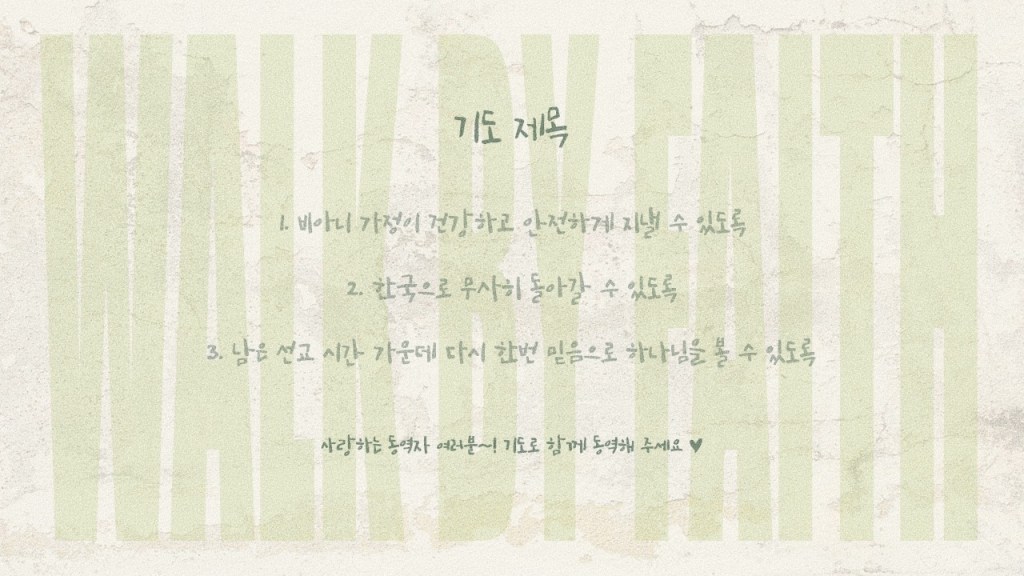 WALK BY FAITH
기도 제목
1. 비아니 가정이 건강하고 안전하게 지낼 수 있도록
2. 한국으로 무사히 돌아갈 수 있도록
3. 남은 선교 시간 가운데 다시 한번 믿음으로 하나님을 볼 수 있도록
사랑하는 동역자 여러분~! 기도로 함께 동역해 주세요 ♥